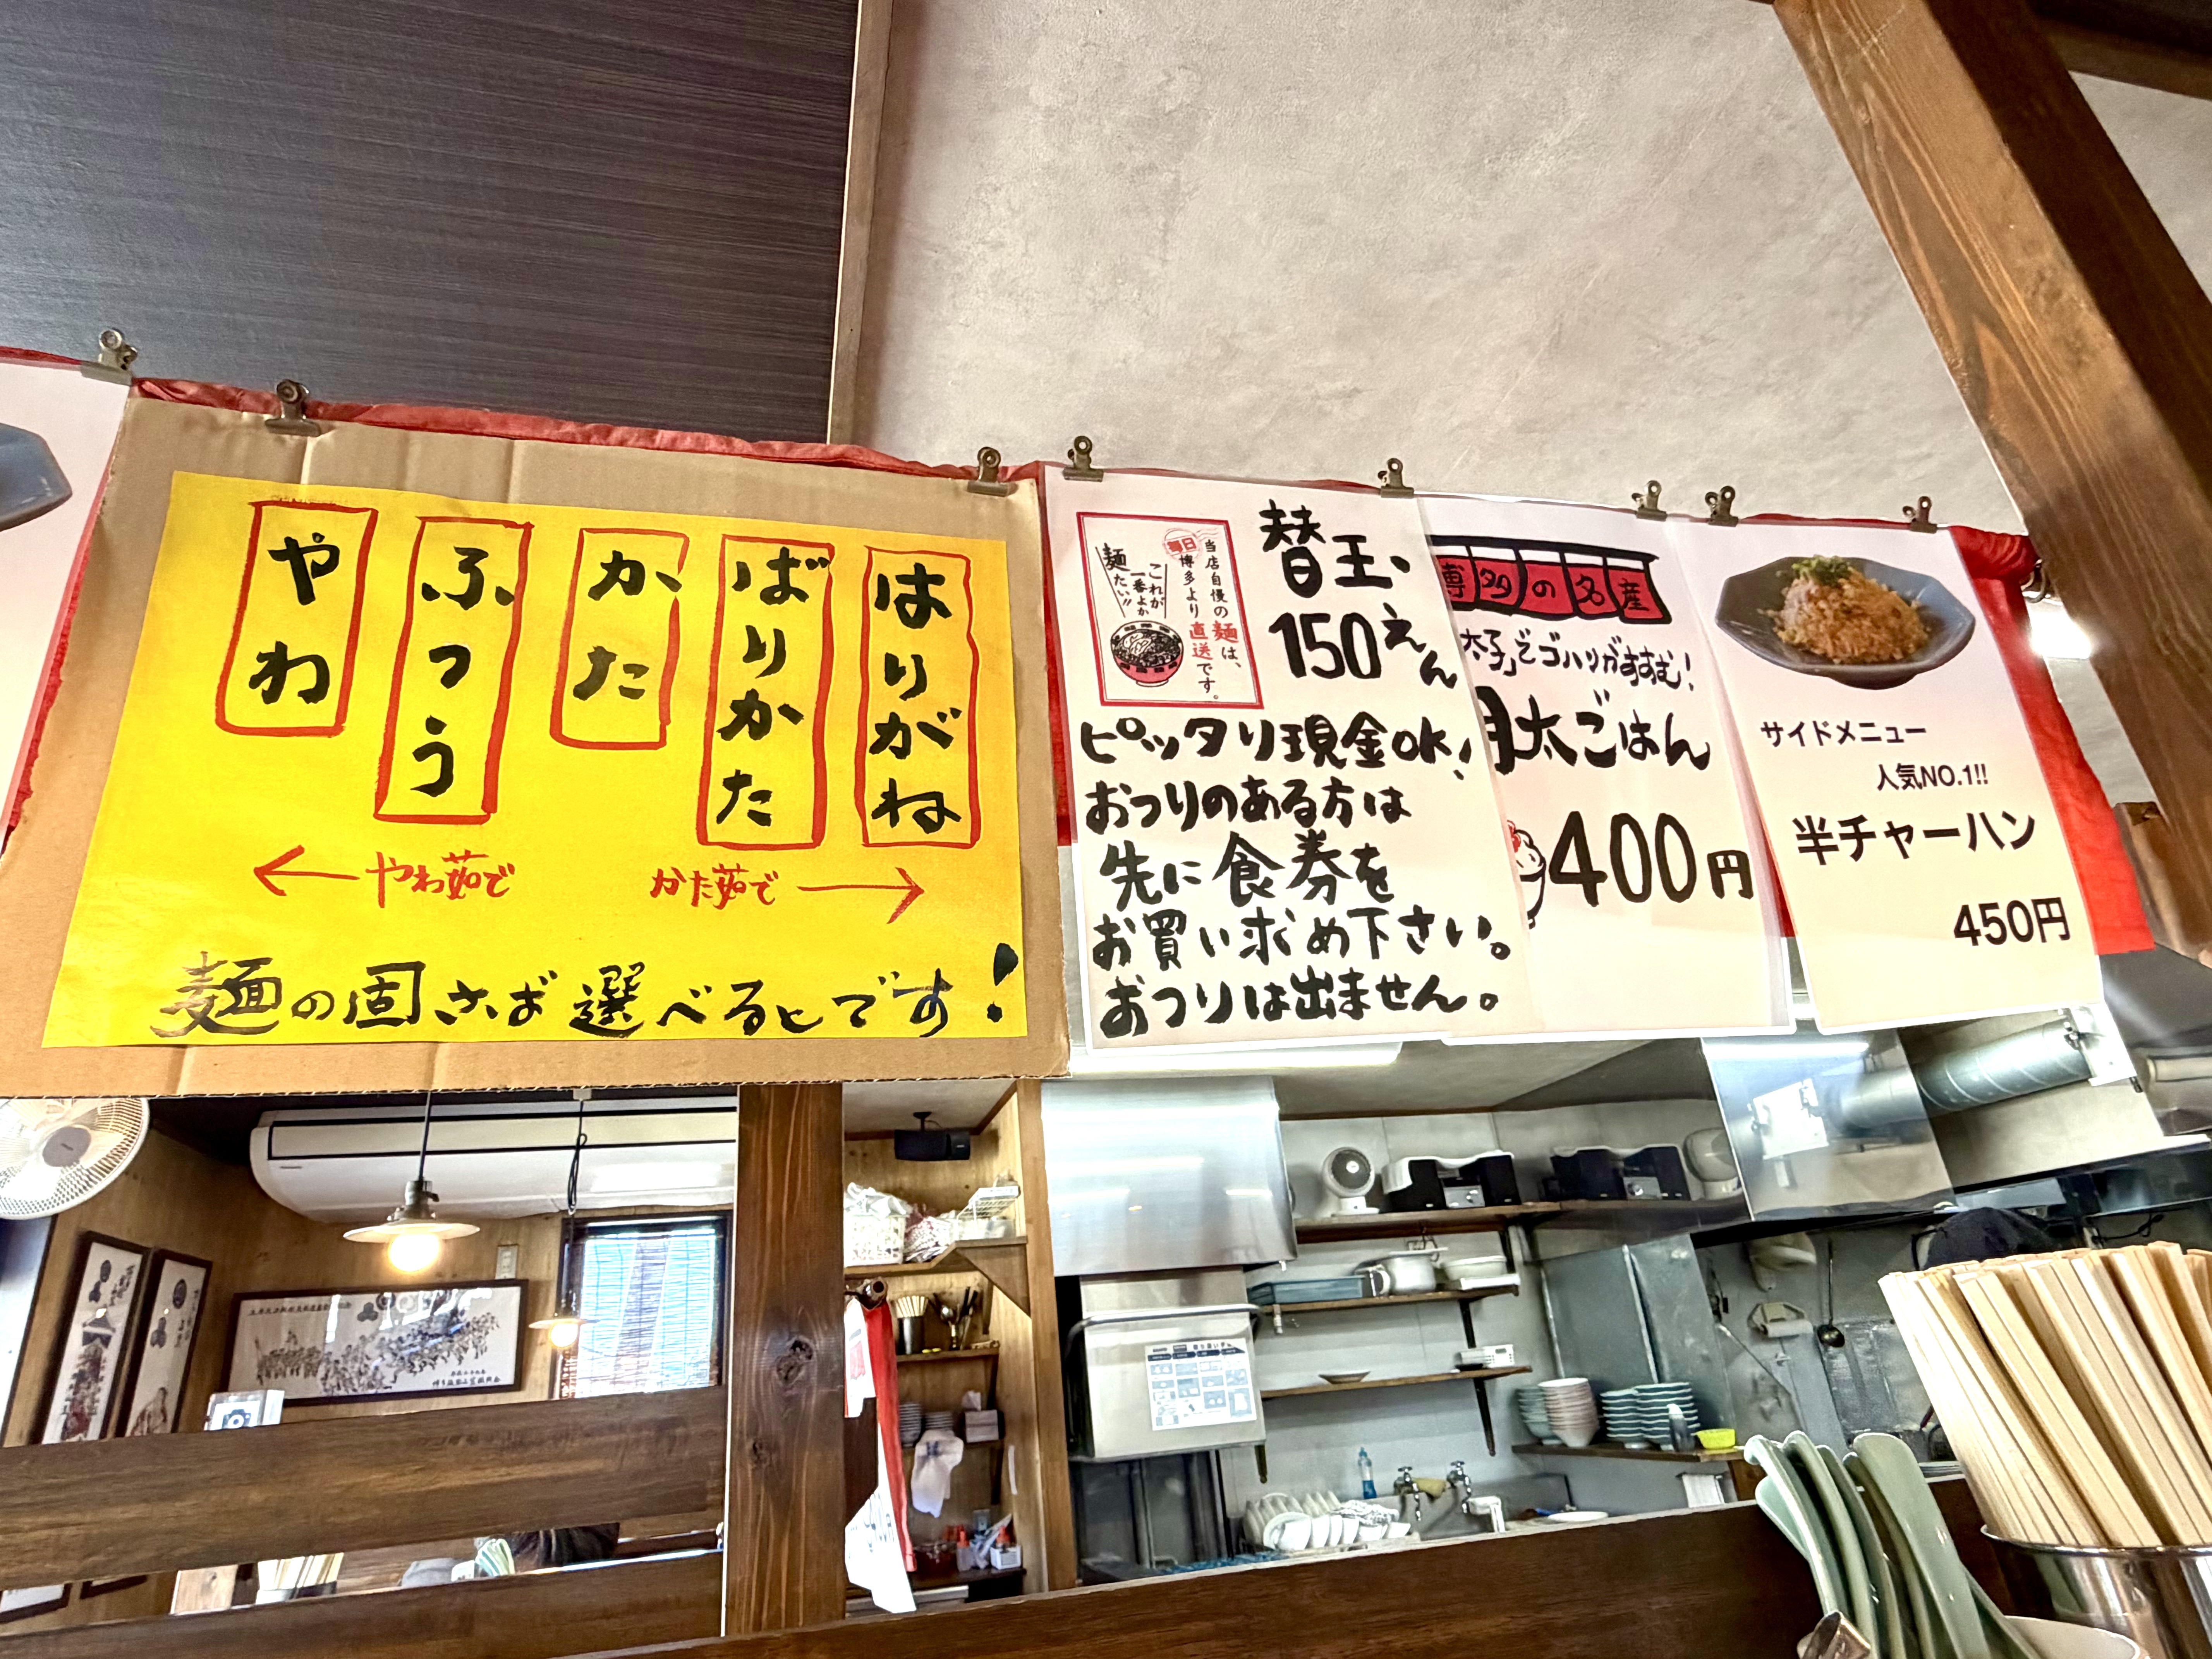 やわ
ふつう
かた
ばりかた
はりがね
←やわ茹で
かた茹で→
麺の固さば選べるとです!
当店自慢の麺は、
毎日博多より直送です。
これが
一番よか
麺たい!!
替玉、
150えん
ピッタリ現金OK!
おつりのある方は
先に食券を
お買い求め下さい。
おつりは出ません。
博多の名産
太子」でゴハンがすすむ!
明太ごはん
400円
サイドメニュー
人気NO.1!!
半チャーハン
450円